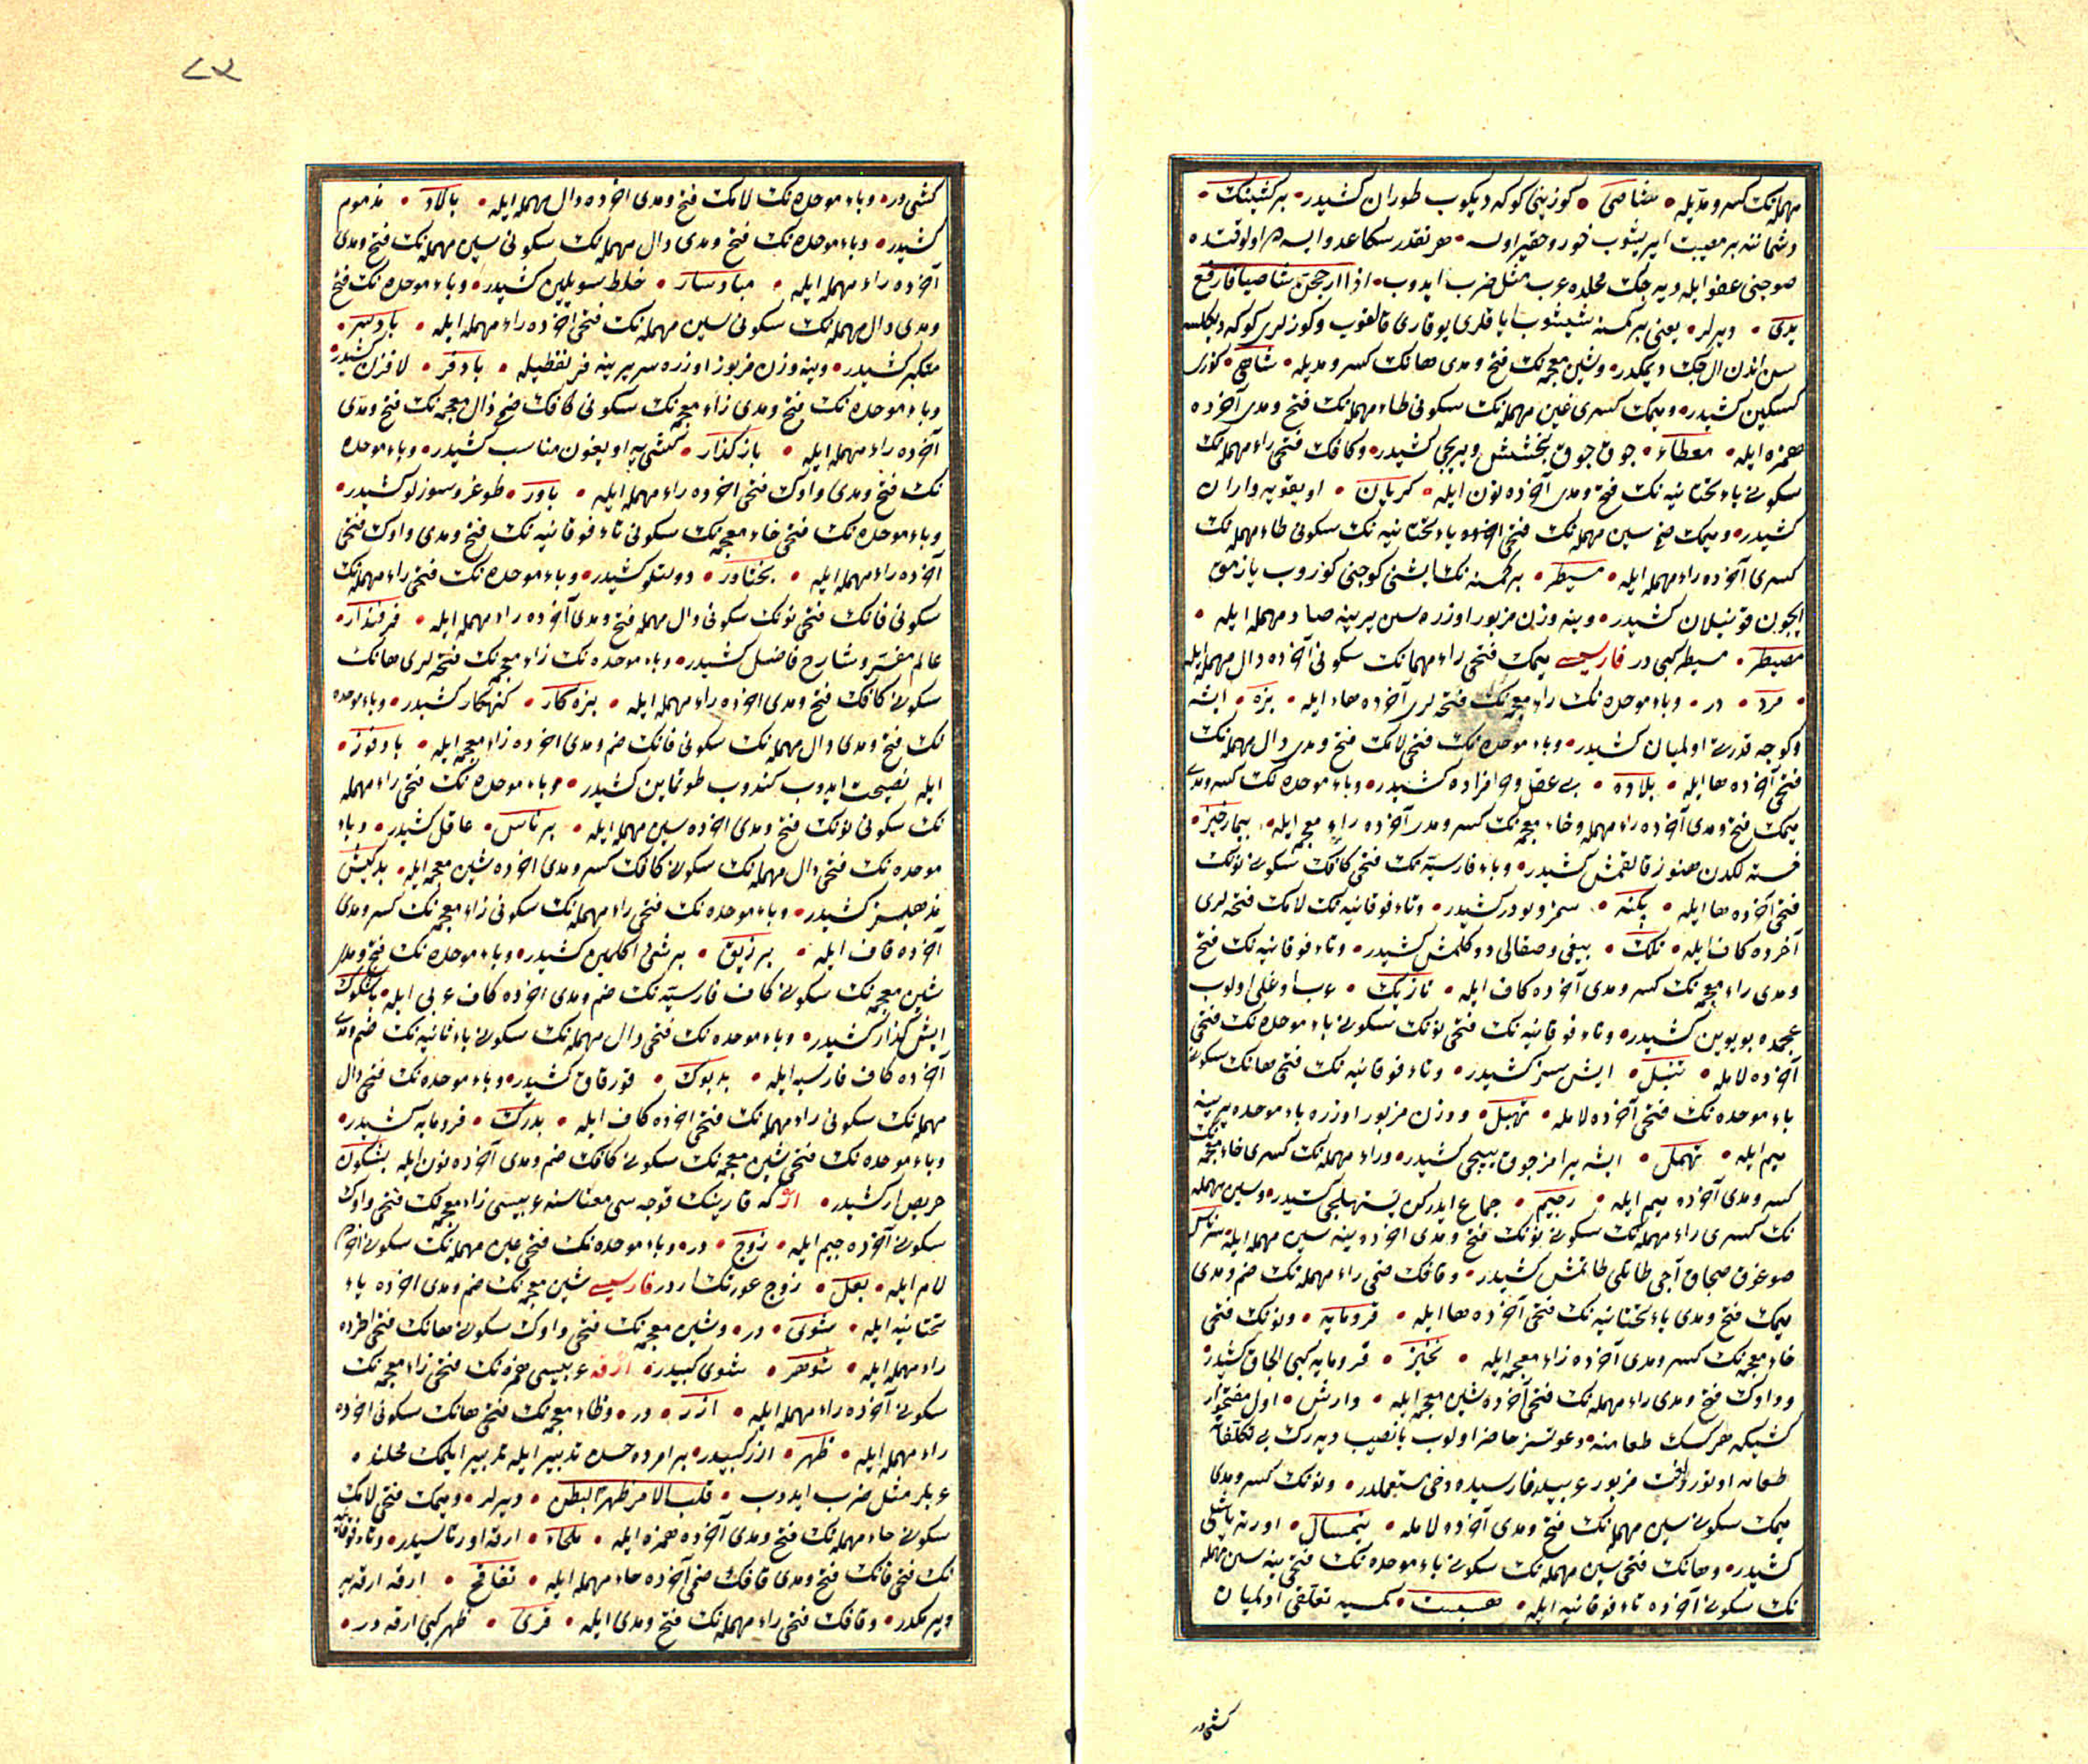 مهمله‌نک کسر و مدّیله • شاصی • کوزینی کوکه دیکوب طوران کشیدر • بر کشینک •
وشماتنه بر مصیبت ایریشوب خور و حقیر اولسه • هر نقدر سکا عدو ایسه ده اولوقتده
صوچنی عفو ایله دیه‌جک محلده عرب مثل ضرب ایدوب • اذا ارجحن شاصیا فارفع
یدی • دیرلر • یعنی بر کمسنه شیشوب ایاقلری یوقاری قالقوب وکوزلری کوکه دیکلسه
سن اندن ال چک دیمکدر • وشین معجمه‌نک فتح و مدی هانک کسر و مدیله • شاهی • کوزی
کسکین کشیدر • ومیمک کسری عین مهمله‌نک سکونی طاء مهمله‌نک فتح و مدی آخرده
همزه ایله • معطاء • جوق جوق بخشش ویریجی کشیدر • وکافک فتحی راء مهمله‌نک
سکونی یاء تحتانیه‌نک فتح و مدی آخرده نون ایله • کریان • اویقویه واران
کشیدر • ومیمک ضم سین مهمله‌نک فتحی اخرده یاء تحتانیه‌نک سکونی طاء مهمله‌نک
کسری آخرده راء مهمله ایله • مسیطر • بر کمسنه‌نک ایشنی کوجنی کوروب یازمق
ایچون قونیلان کشیدر • وینه وزن مزبور اوزره سین یرینه صاد مهمله ایله •
مصیطر • مسیطر کبی در فارسیسی میمک فتحی راء مهمله‌نک سکونی آخرده دال مهمله ایله
• مرد • در • وباء موحده‌نک زاء معجمه‌نک فتحه‌لری آخرده هاء ایله • بزه • ایشه
وکوجه قدرتی اولمیان کشیدر • وباء موحده‌نک فتحی لامک فتح و مدی دال مهمله‌نک
فتحی آخرده ها ایله • بلاده • بی عقل و حرافزاده کشیدر • وباء موحده‌نک کسر و مدی
میمک فتح و مدی آخرده راء مهمله وخاء معجمه‌نک کسر و مدی آخرده زاء معجم ایله • بیمارخیز •
خسته‌لکدن هنوز قالقمش کشیدر • وباء فارسیه‌نک فتحی کافک سکونی نونک
فتحی آخرده ها ایله • پکنه • سمز و بودر کشیدر • وتاء فوقانیه‌نک لامک فتحه‌لری
آخرده کاف ایله • تلک • بیغی وصقالی دوکلمش کشیدر • وتاء فوقانیه‌نک فتح
و مدی زاء معجمه‌نک کسر و مدی آخرده کاف ایله • تازیک • عرب اوغلی اولوب
عجمده بویوین کشیدر • وتاء فوقانیه‌نک فتحی نونک سکونی باء موحده‌نک فتحی
آخرده لامله • تنبل • ایش سز کشیدر • وتاء فوقانیه‌نک فتحی هانک سکونی
باء موحده‌نک فتحی آخرده لامله • تهبل • ووزن مزبور اوزره باء موحده یرینه
میم ایله • تهمل • ایشه یرامز جوق ییجی کشیدر • وراء مهمله‌نک کسری خاء معجمه‌نک
کسر و مدی آخرده میم ایله • رخیم • جماع ایدرکن پستهلیجی کشیدر • وسین مهمله
نک کسری راء مهمله‌نک سکونی نونک فتح و مدی اخرده ینه سین مهمله ایله • سرناس
صوغق صیجاق آجی طاتلی طاتمش کشیدر • وفانک ضمی راء مهمله‌نک ضم و مدی
میمک فتح و مدی یاء تحتانیه‌نک فتحی آخرده ها ایله • فرومایه • ونونک فتحی
خاء معجمه‌نک کسر و مدی آخرده زاء معجمه ایله • نخیز • فرومایه کبی الجاق کشیدر
وواوک فتح و مدی راء مهمله‌نک فتحی آخرده شین معجمه ایله • وارش • اول مفتخوار
کشیکه هرکسک طعامنه • دعوتسز حاضر اولوب یا نصیب دیه‌رک بی تکلفانه
طعامه اوتورر لغت مزبور عربیده فارسیده دخی مستعملدر • ونونک کسر و مدی
میمک سکونی سین مهمله‌نک فتح و مدی آخرده لامله • نیمسال • اورته یاشلی
کشیدر • وهانک فتحی سین مهمله‌نک سکونی باء موحده‌نک فتحی ینه سین مهمله
نک سکونی آخرده تاء فوقانیه ایله • هسبست • کمسیه تعلقی اولمیان
کشیدر
٨٢
کشی در • وباء موحده‌نک لامک فتح و مدی اخرده دال مهمله ایله • بالاد • مذموم
کشیدر • وباء موحده‌نک فتح و مدی دال مهمله‌نک سکونی سین مهمله‌نک فتح و مدی
آخرده راء مهمله ایله • بادسار • خلط سویلین کشیدر • وباء موحده‌نک فتح
و مدی دال مهمله‌نک سکونی سین مهمله‌نک فتحی اخرده راء مهمله ایله • بادسر •
متکبر کشیدر • وینه وزن مزبور اوزره سر یرینه فر لفظیله • بادفر • لافزن کشیدر
وباء موحده‌نک فتح و مدی زاء معجمه‌نک سکونی کافک ضم ذال معجمه‌نک فتح و مدی
آخرده راء مهمله ایله • بازکذار • کشی‌یه اویغون مناسب کشیدر • وباء موحده
نک فتح و مدی واوک فتحی اخرده راء مهمله ایله • باور • طوغرو سوزلو کشیدر •
وباء موحده‌نک فتحی خاء معجمه‌نک سکونی تاء فوقانیه‌نک فتح و مدی واوک فتحی
آخرده راء مهمله ایله • بختاور • دولتلو کشیدر • وباء موحده‌نک فتحی راء مهمله‌نک
سکونی فانک فتحی نونک سکونی دال مهمله فتح و مدی آخرده راء مهمله ایله • برفندار •
عالم مفسر و شارح فاضل کشیدر • وباء موحده‌نک زاء معجمه‌نک فتحه‌لری هانک
سکونی کافک فتح و مدی اخرده راء مهمله ایله • بزه‌کار • کنهکار کشیدر • وباء موحده
نک فتح و مدی دال مهمله‌نک سکونی فانک ضم و مدی اخرده زاء معجم ایله • بادفوز •
ایله نصیحت ایدوب کندوب طوتماین کشیدر • وباء موحده‌نک فتحی راء مهمله
نک سکونی نونک فتح و مدی اخرده سین مهمله ایله • برناس • عاقل کشیدر • وباء
موحده‌نک فتحی دال مهمله‌نک سکونی کافک کسر و مدی اخرده شین معجمه ایله • بدکیش
مذهبسز کشیدر • وباء موحده‌نک فتحی راء مهمله‌نک سکونی زاء معجمه‌نک کسر و مدی
آخرده قاف ایله • برزیق • بر شئی اکلمین کشیدر • وباء موحده‌نک فتح و مدی
شین معجمه‌نک سکونی کاف فارسیه‌نک ضم و مدی اخرده کاف عربی ایله • باشکوک
ایش کذار کشیدر • وباء موحده‌نک فتحی دال مهمله‌نک سکونی باء ثانیه‌نک ضم و مدی
آخرده کاف فارسیه ایله • بدبوک • قورقاق کشیدر • وباء موحده‌نک فتحی دال
مهمله‌نک سکونی راء مهمله‌نک فتحی اخرده کاف ایله • بدرک • فرومایه کشیدر •
وباء موحده‌نک فتحی شین معجمه‌نک سکونی کافک ضم و مدی آخرده نون ایله بشکون
حریص ار کشیدر • ار که قارینک قوجه‌سی معناسنه عربیسی زاء معجمه‌نک فتحی واوک
سکونی آخرده جیم ایله • زوج • در • وباء موحده‌نک فتحی عین مهمله‌نک سکونی اخرده
لام ایله • بعل • زوج عورتک ار در فارسیسی شین معجمه‌نک ضم و مدی اخرده یاء
تحتانیه ایله • شوی • در • وشین معجمه‌نک فتحی واوک سکونی هانک فتحی اخرده
راء مهمله ایله • شوهر • شوی کبیدر • ارقه عربیسی همزه‌نک فتحی زاء معجمه‌نک
سکونی آخرده راء مهمله ایله • ازر • در • وظاء معجمه‌نک فتحی هانک سکونی اخرده
راء مهمله ایله • ظهر • ازر کبیدر • بر امرده حسن تدبیر ایله تدبیر ایلمک محلنده
عربلر مثل ضرب ایدوب • قلب الامر ظهرا لبطن • دیرلر • ومیمک فتحی لامک
سکونی حاء مهمله‌نک فتح و مدی آخرده همزه ایله • ملحاء • ارقه اورتاسیدر • وتاء فوقانیه
نک فتحی فانک فتح و مدی قافک ضمی آخرده حاء مهمله ایله • تفاقح • ارقه ارقه‌یه
ویرمکدر • وقافک فتحی راء مهمله‌نک فتح و مدی ایله • قری • ظهر کبی ارقه در •